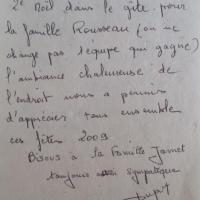 2e Noël dans le gîte pour
la famille Rousseau (on ne
change pas l'équipe qui gagne)
l'ambiance chaleureuse de
l'endroit nous a permis
d'apprécier tous ensemble
ces fêtes 2009
Bisous à la famille Jamet
toujours aussi sympatique